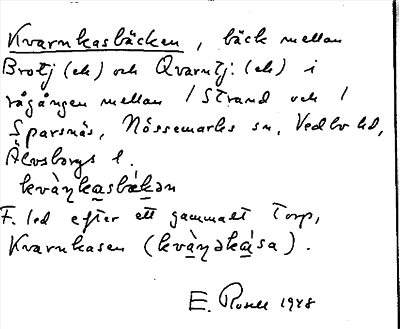 Kvarnkasbäcken, bäck mellan
Brotj (ek) och Qvarntj. (ek) i
rågången mellan 1 Strand och 1
Sparsnäs, Nössemarks sn, Vedbo hd,
Älvsborgs l.
kvàṇkasbäkən
F. led efter ett gammalt torp,
Kvarnkasen (kvàṇəkása).
E. Rosell 1948